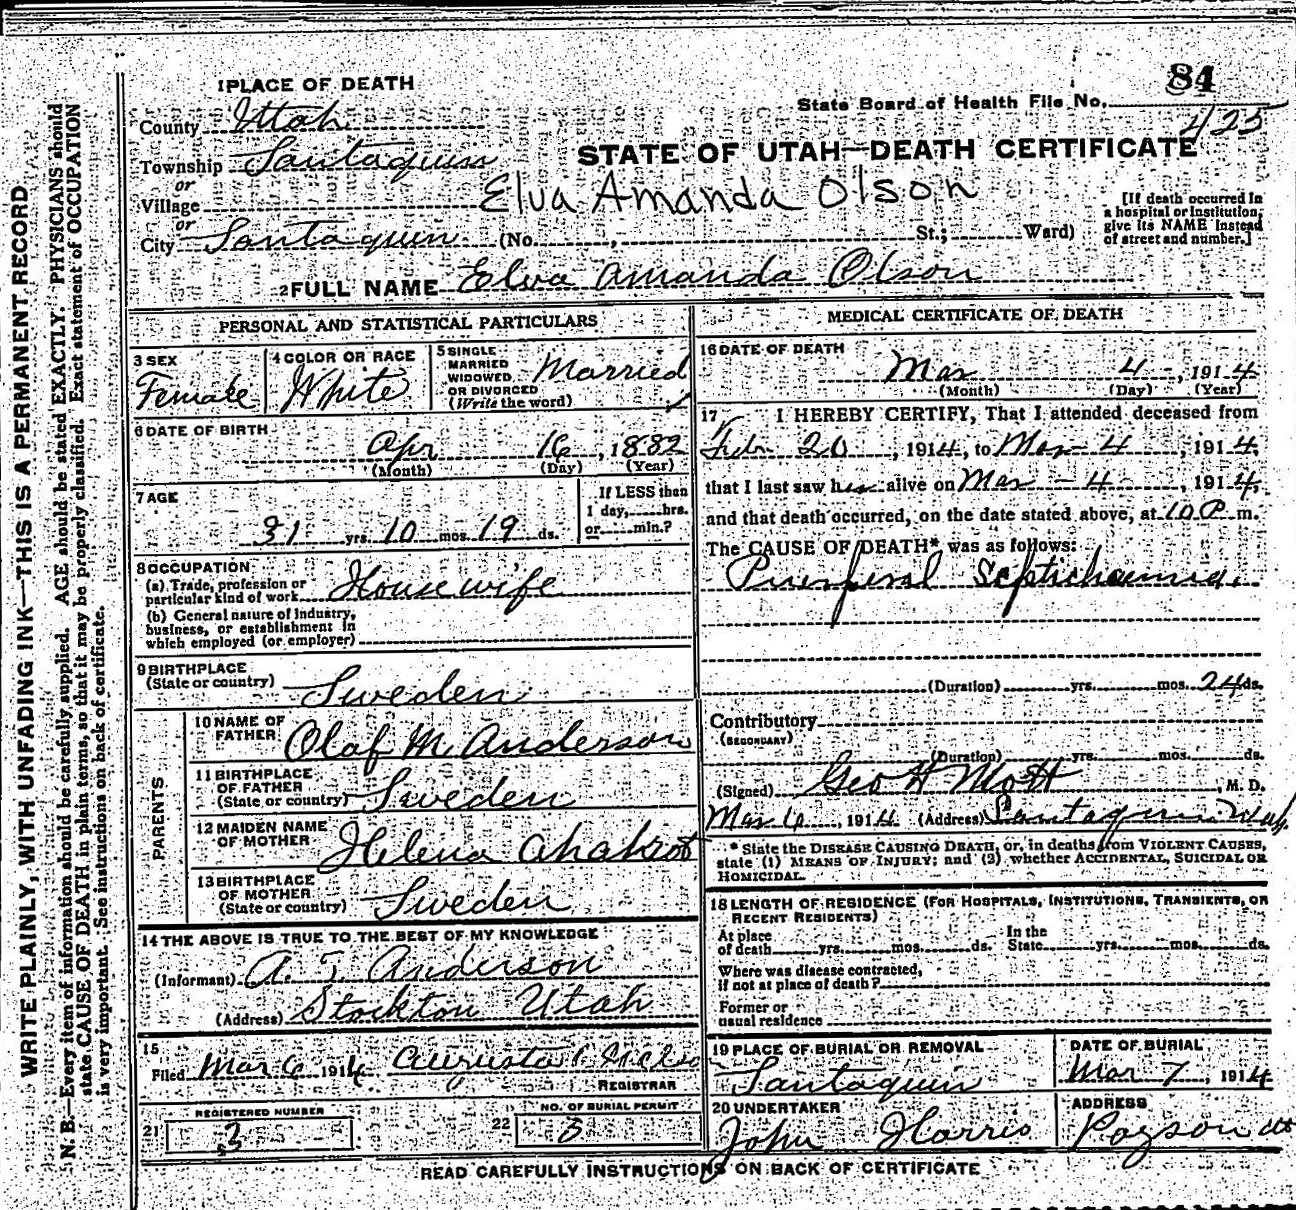 84
1 PLACE OF DEATH
State Board of Health File No. 425
County Utah
Township Santaquin
STATE OF UTAH—DEATH CERTIFICATE
or
Village
Elva Amanda Olson
or
City Santaquin (No. , St.; Ward)
[If death occurred in
a hospital or institution,
give its NAME instead
of street and number.]
2 FULL NAME Elva Amanda Olson
PERSONAL AND STATISTICAL PARTICULARS
3 SEX
Female
4 COLOR OR RACE
White
5 SINGLE
MARRIED
WIDOWED
OR DIVORCED
(Write the word)
Married
6 DATE OF BIRTH
Apr 16, 1882
(Month) (Day) (Year)
7 AGE
31 yrs. 10 mos. 19 ds.
If LESS than
1 day, hrs.
or min.?
8 OCCUPATION
(a) Trade, profession or
particular kind of work Housewife
(b) General nature of industry,
business, or establishment in
which employed (or employer)
9 BIRTHPLACE
(State or country) Sweden
PARENTS
10 NAME OF
FATHER Olaf M. Anderson
11 BIRTHPLACE
OF FATHER
(State or country) Sweden
12 MAIDEN NAME
OF MOTHER Helena
13 BIRTHPLACE
OF MOTHER
(State or country) Sweden
14 THE ABOVE IS TRUE TO THE BEST OF MY KNOWLEDGE
(Informant) A. T. Anderson
(Address) Stockton Utah
15
Filed Mar 6, 1914 Augusta
REGISTRAR
21 REGISTERED NUMBER
3
22 NO. OF BURIAL PERMIT
3
MEDICAL CERTIFICATE OF DEATH
16 DATE OF DEATH
Mar 4, 1914
(Month) (Day) (Year)
17 I HEREBY CERTIFY, That I attended deceased from
Febr 20, 1914, to Mar - 4, 1914,
that I last saw her alive on Mar - 4 -, 1914,
and that death occurred, on the date stated above, at 10 P m.
The CAUSE OF DEATH* was as follows:
Puerperal Septichaemia.
(Duration) yrs. mos. 24 ds.
Contributory
(SECONDARY)
(Duration) yrs. mos. ds.
(Signed) Geo H Mott, M. D.
Mar 6, 1914 (Address) Santaquin Utah.
* State the DISEASE CAUSING DEATH, or, in deaths from VIOLENT CAUSES,
state (1) MEANS OF INJURY; and (2) whether ACCIDENTAL, SUICIDAL OR
HOMICIDAL.
18 LENGTH OF RESIDENCE (FOR HOSPITALS, INSTITUTIONS, TRANSIENTS, OR
RECENT RESIDENTS)
At place
of death yrs. mos. ds.
In the
State yrs. mos. ds.
Where was disease contracted,
if not at place of death?
Former or
usual residence
19 PLACE OF BURIAL OR REMOVAL
Santaquin
DATE OF BURIAL
Mar 7, 1914
20 UNDERTAKER
John Harris
ADDRESS
Payson Ut
READ CAREFULLY INSTRUCTIONS ON BACK OF CERTIFICATE
WRITE PLAINLY, WITH UNFADING INK—THIS IS A PERMANENT RECORD
N. B.—Every item of information should be carefully supplied. AGE should be stated EXACTLY. PHYSICIANS should
state CAUSE OF DEATH in plain terms, so that it may be properly classified. Exact statement of OCCUPATION
is very important. See instructions on back of certificate.